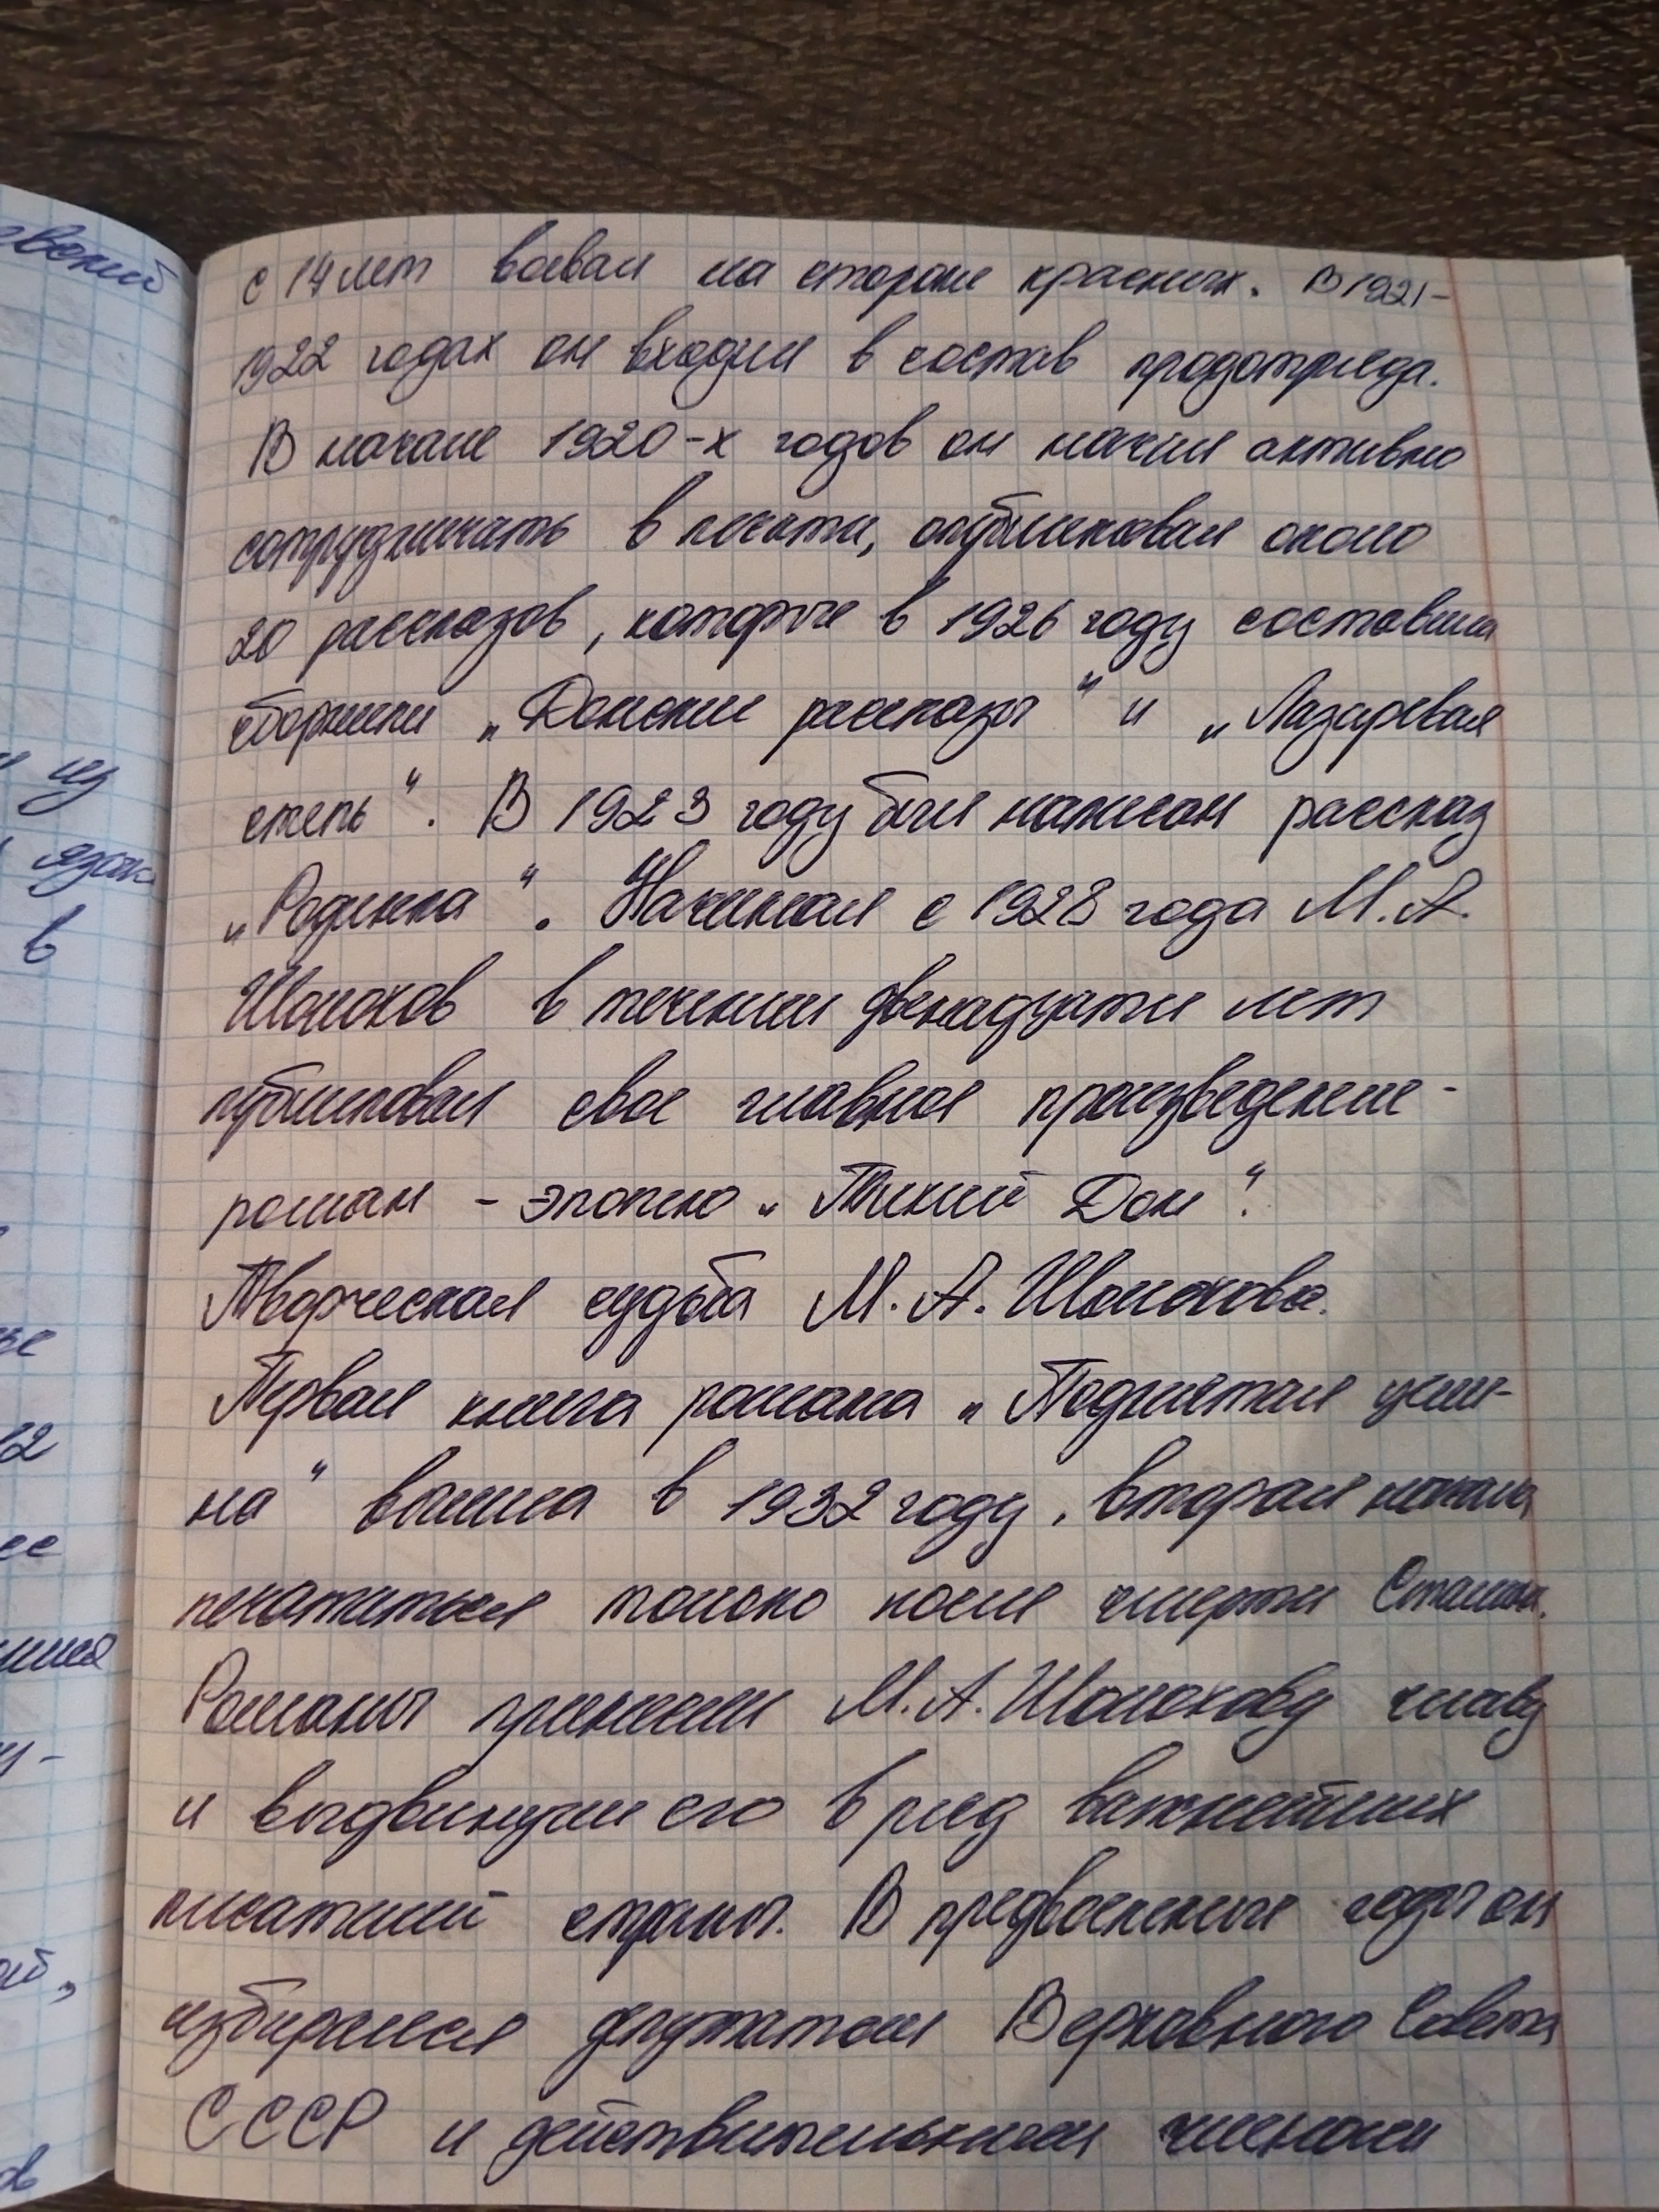 с 14 лет воевал на стороне красных. В 1921-
1922 годах он входил в состав продотряда.
В начале 1920-х годов он начал активно
сотрудничать в печати, опубликовал около
20 рассказов, которые в 1926 году составили
сборники „Донские рассказы" и „Лазаревая
степь". В 1923 году был написан рассказ
„Родинка". Начиная с 1928 года М.А.
Шолохов в течении двенадцати лет
публиковал свое главное произведение -
роман - эпопею „Тихий Дон".
Творческая судьба М.А. Шолохова.
Первая книга романа „Поднятая цели-
на" вышла в 1932 году, вторая начала
печататься только после смерти Сталина.
Романы принесли М.А. Шолохову славу
и выдвинули его в ряд важнейших
писателей страны. В предвоенные годы он
избирался депутатом Верховного Совета
СССР и действительным членом